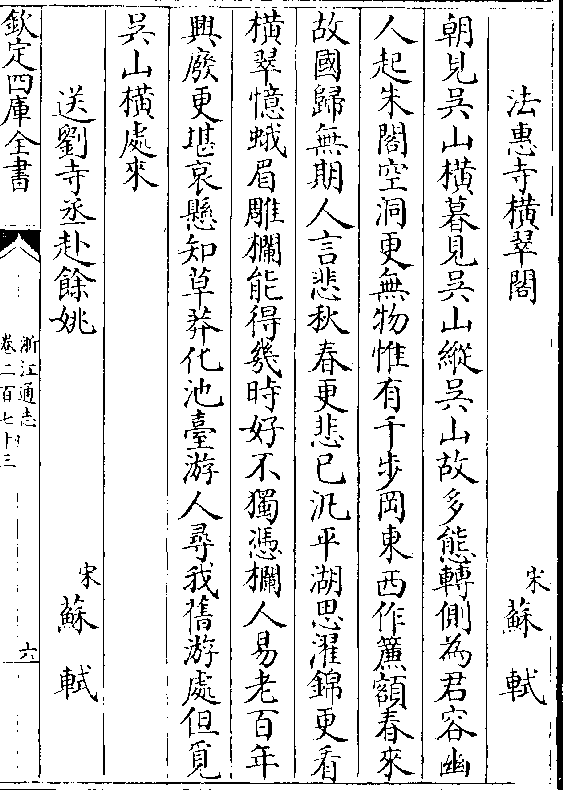 法惠寺横翠閣
宋蘇軾
朝見吳山横暮見吳山縱吳山故多態轉側為君容幽
人起朱閣空洞更無物惟有千步岡東西作簾額春來
故國歸無期人言悲秋春更悲已汎平湖思濯錦更看
横翠憶蛾眉雕欄能得幾時好不獨憑欄人易老百年
興廢更堪哀懸知草莽化池臺游人尋我舊游處但覓
吳山横處來
送劉寺丞赴餘姚
宋蘇軾
欽定四庫全書
浙江通志
卷二百七十三
六